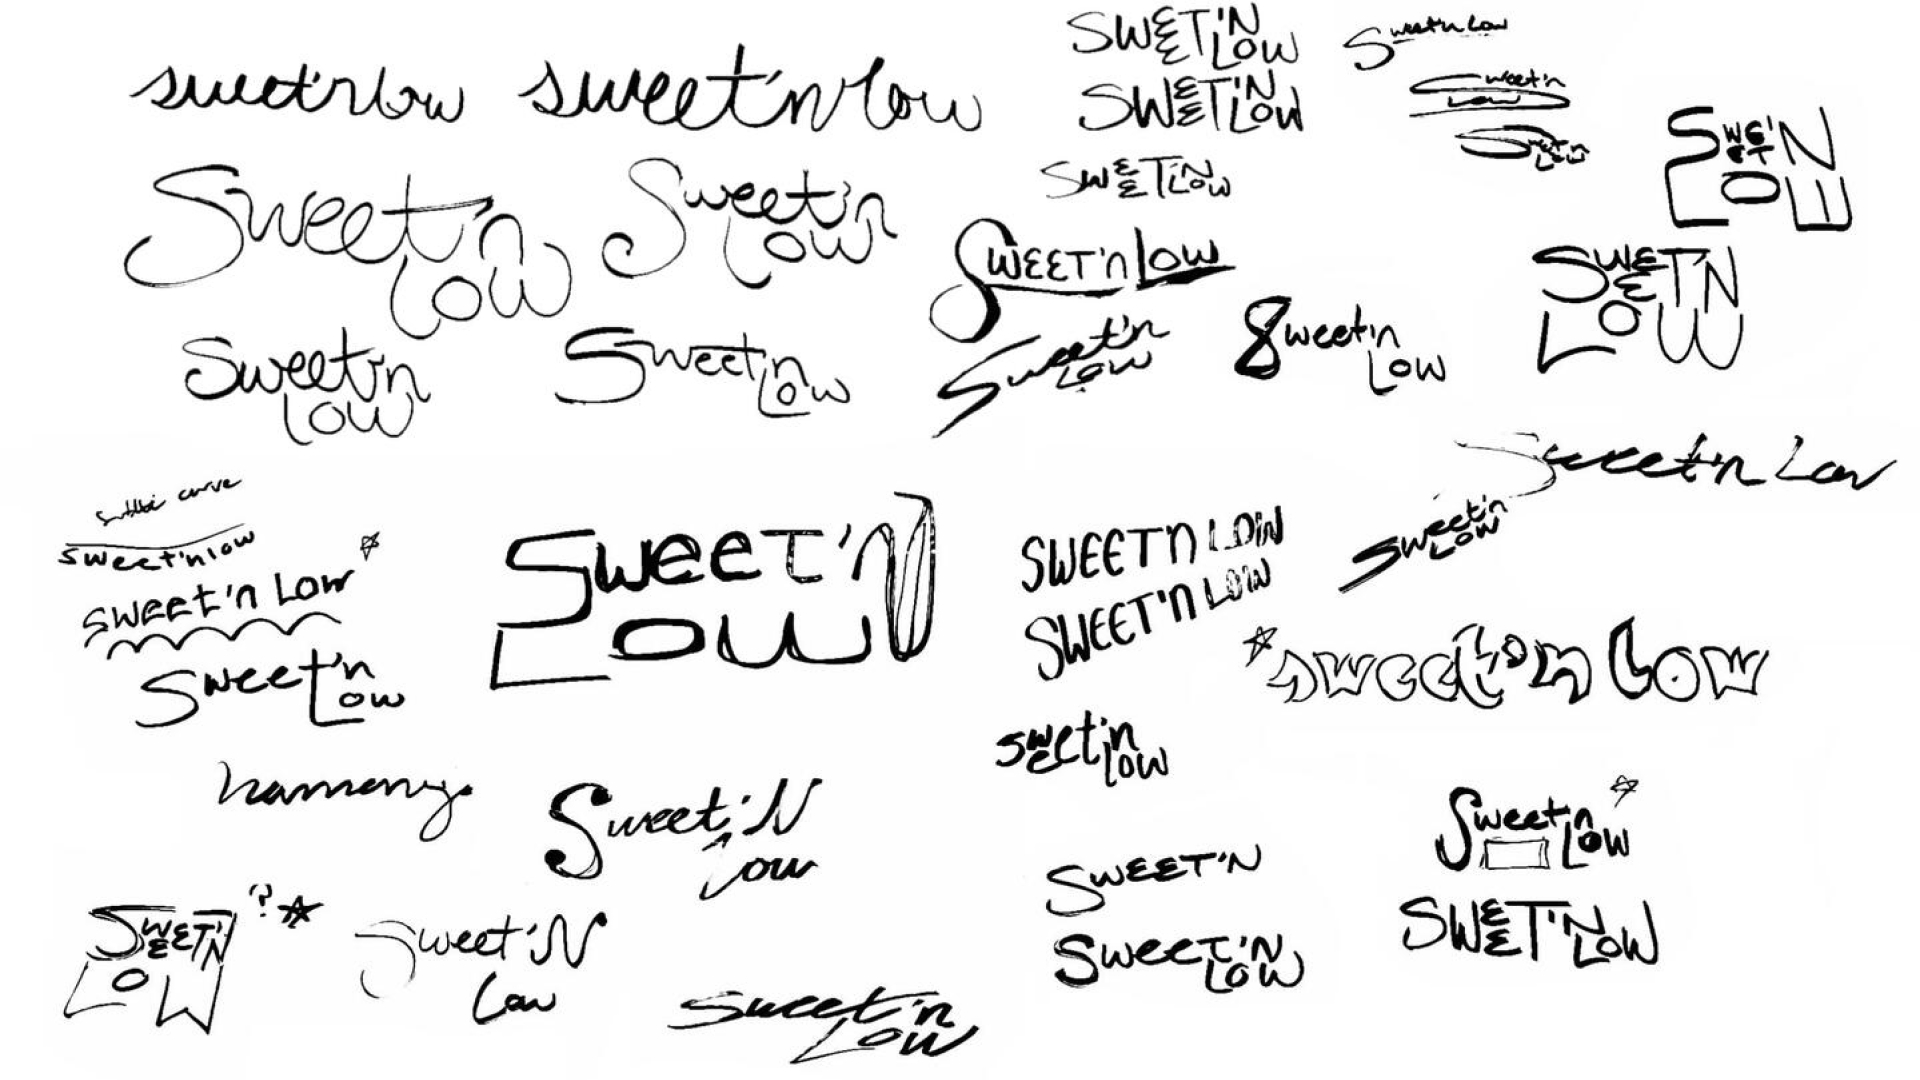 sweet'n low
sweet'n low
SWEET'N
LOW
SWEET'N
LOW
SWEET'N
LOW
Sweet'n Low
Sweet'n
Low
Sweet'n
Low
SWEET'N
LOW
Sweet'n
Low
Sweet'n
Low
SWEET'n Low
SWEET'N
LOW
Sweet'n
Low
Sweet'n
Low
Sweet'n
Low
Sweet'n
Low
Sweet'n Low
curve
sweet'n low
SWEET'n Low
Sweet'n
Low
SWeeT'N
LOW
SWEET'N LOW
SWEET'N LOW
Sweet'n
Low
sweet'n Low
sweet'n
Low
harmony
Sweet'N
Low
Sweet'n
Low
SWEET'N
SWeeT'N
LOW
SWEET'N
LOW
?
SWEET'N
LOW
Sweet'N
Low
Sweet'n
Low